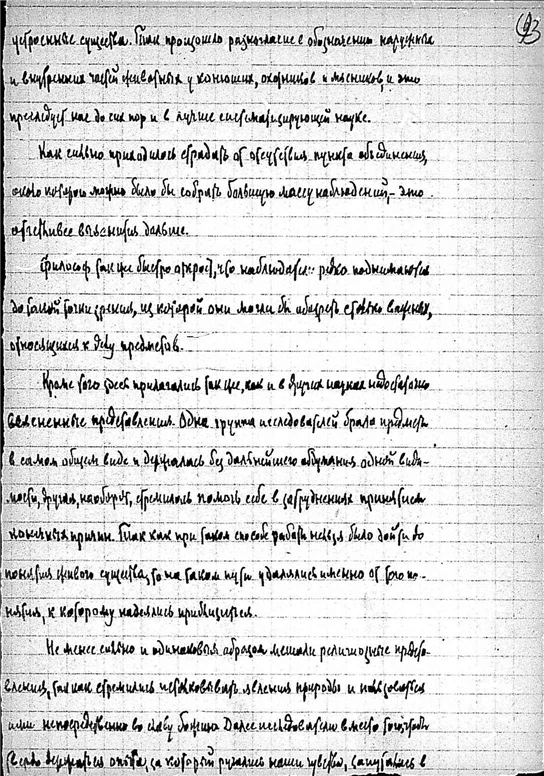 93
устроенные существа. Так произошло разногласие в обозначении наружных
и внутренних частей животных у конюших, охотников и мясников, и это
преследует нас до сих пор и в лучше систематизирующей науке.
Как сильно приходилось страдать от отсутствия пункта объединения,
около которого можно было бы собрать большую массу наблюдений, – это
отчетливее выяснится дальше.
Философ также быстро откроет, что наблюдатели редко поднимаются
до такой точки зрения, из которой они могли бы обозреть столько важных,
относящихся к делу предметов.
Кроме того здесь прилагались также, как и в других науках недостаточно
выясненные представления. Одна группа исследователей брала предметы
в самом общем виде и держалась без дальнейшего обдумания одной види-
мости, другая, наоборот, стремилась помочь себе в затруднениях принятием
конечных причин. Так как при таком способе работы нельзя было дойти до
понятия живого существа, то на таком пути удалялись именно от того по-
нятия, к которому надеялись приблизиться.
Не менее сильно и одинаковым образом мешали религиозные предста-
вления, так как стремились истолковывать явления природы и пользоваться
ими непосредственно во славу божию. Далее исследователи вместо того чтобы
твердо держаться опыта, за который ручались наши чувства, запутались в